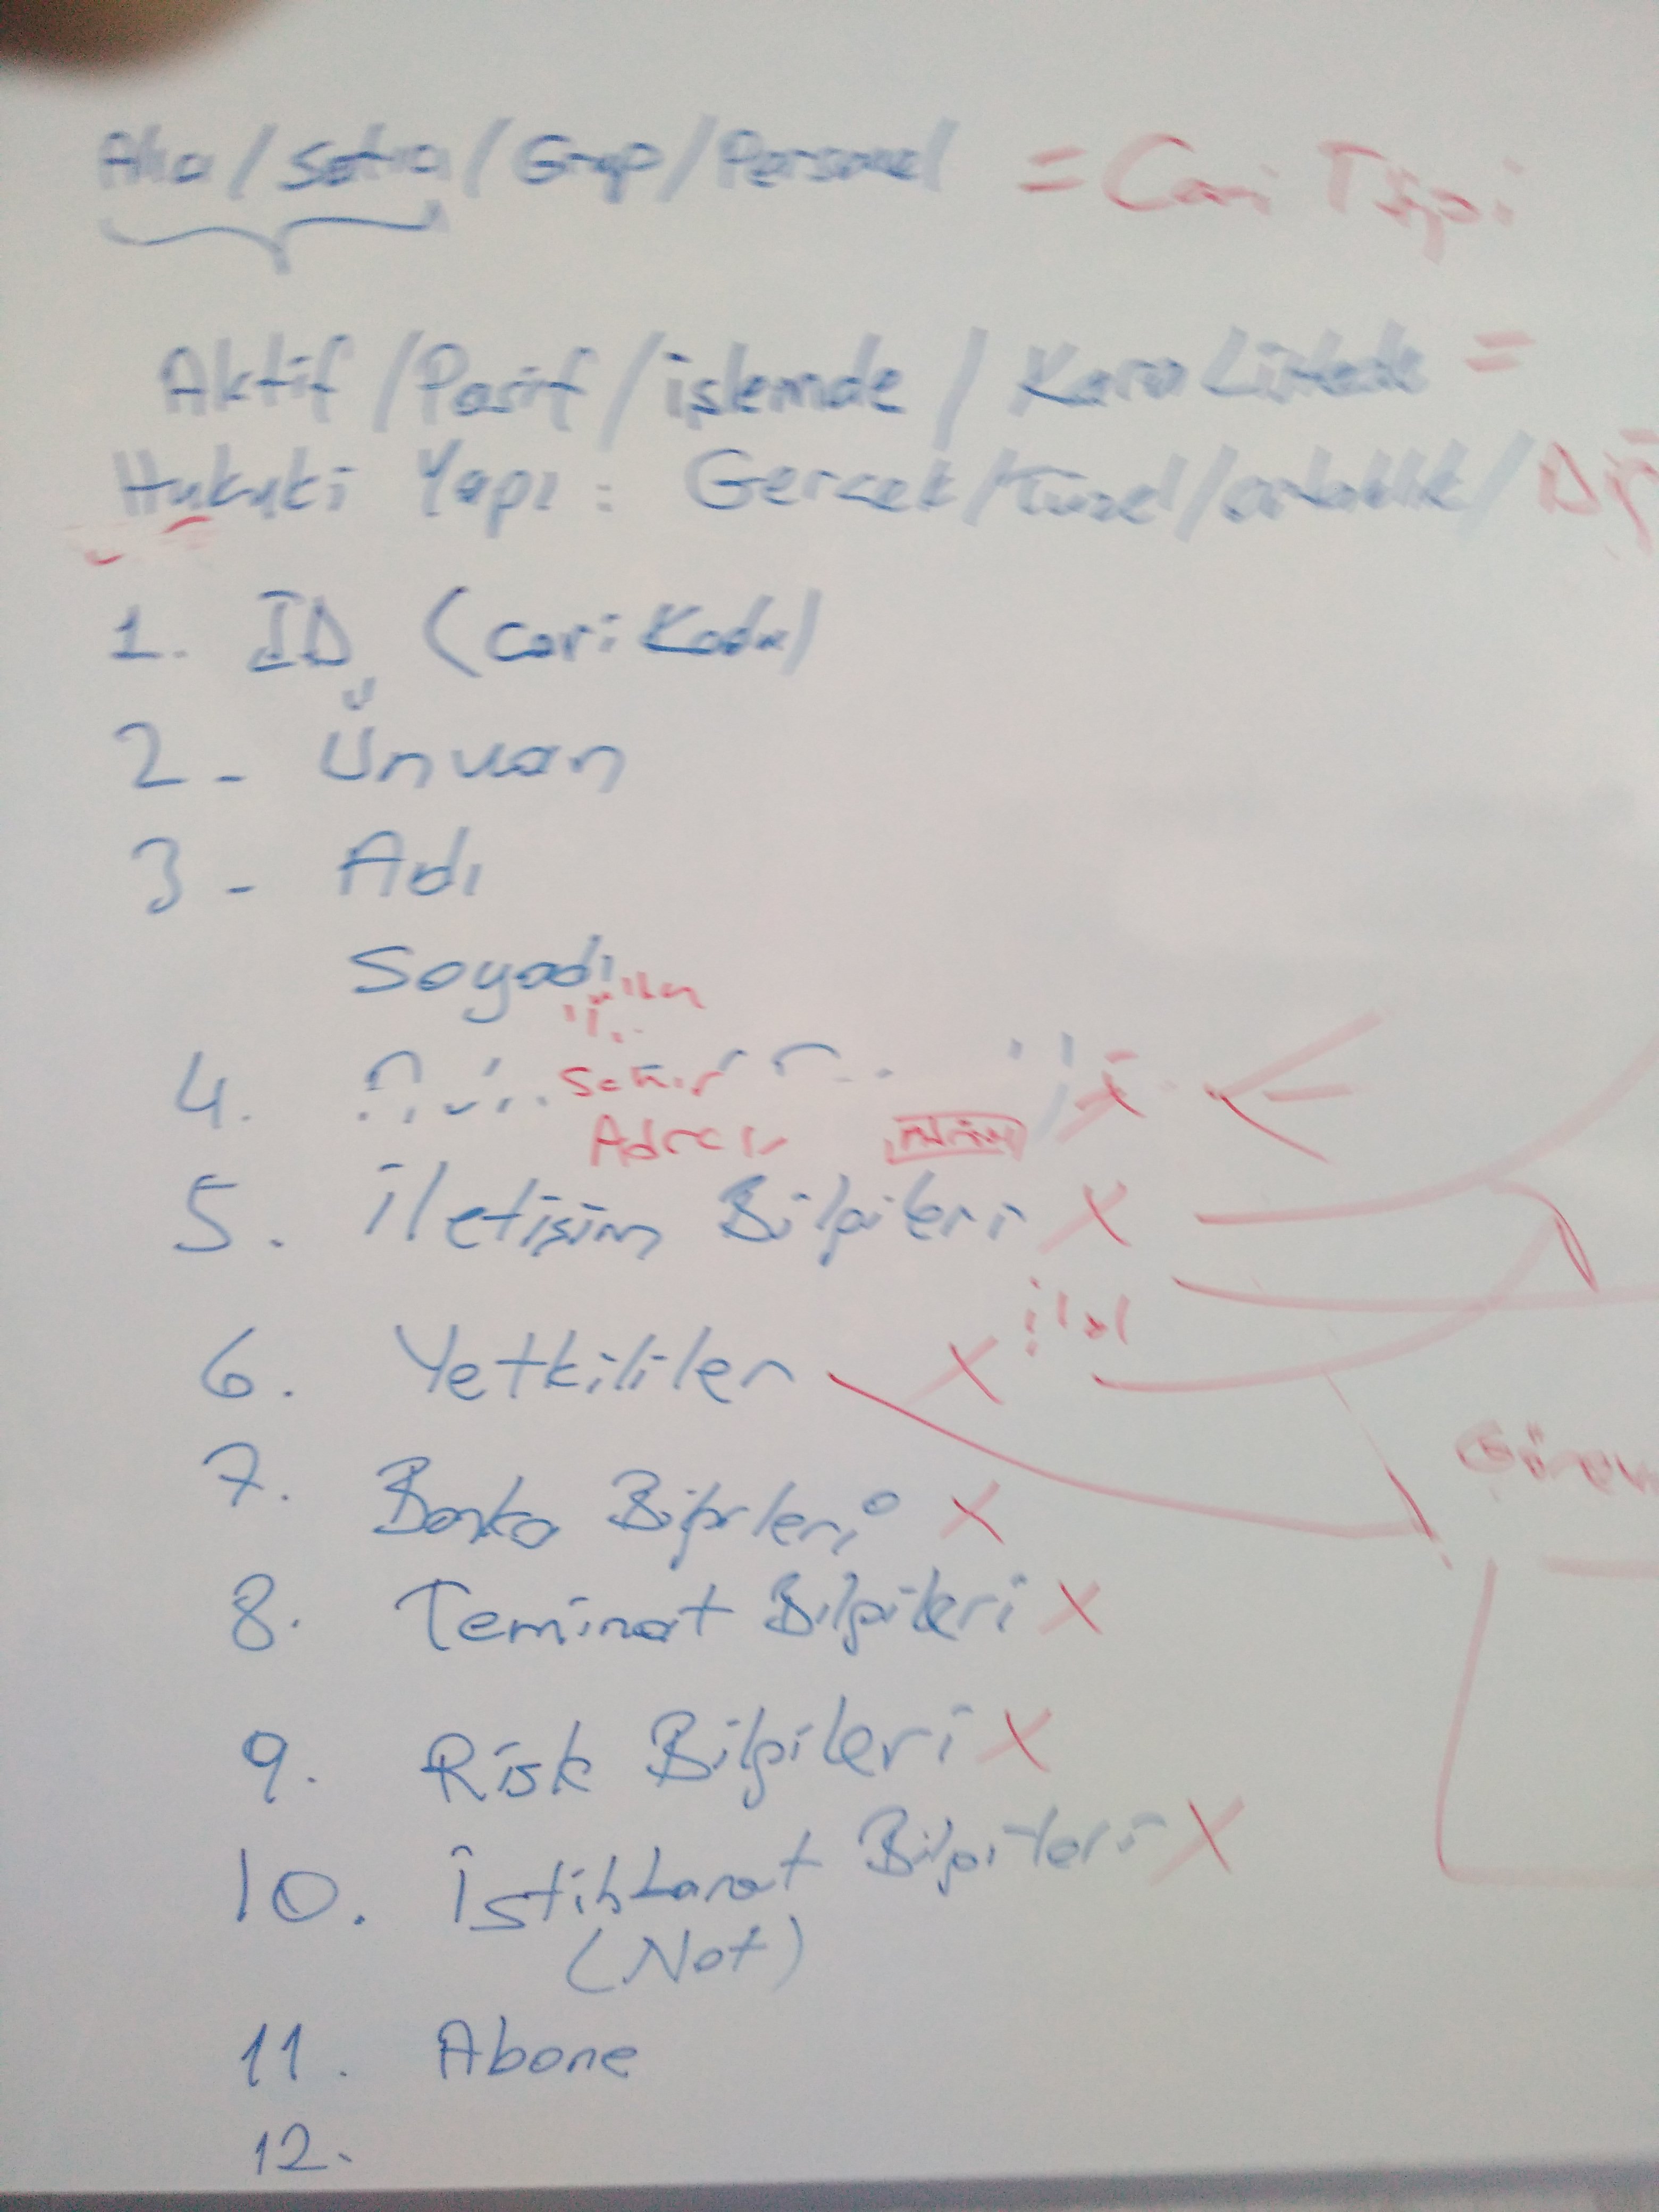 Alıcı/Satıcı/Grup/Personel = Cari Tipi
Aktif/Pasif/işlemde/Kara Listede =
Hukuki Yapı: Gerçek/Tüzel/ortaklık/
1. ID (Cari Kodu)
2- Ünvan
3- Adı
Soyadı
4.
Adres
5. iletişim Bilgileri X
6. Yetkililer X
7. Banka Bilgileri X
8. Teminat Bilgileri X
9. Risk Bilgileri X
10. İstihbarat Bilgileri X
(Not)
11. Abone
12.